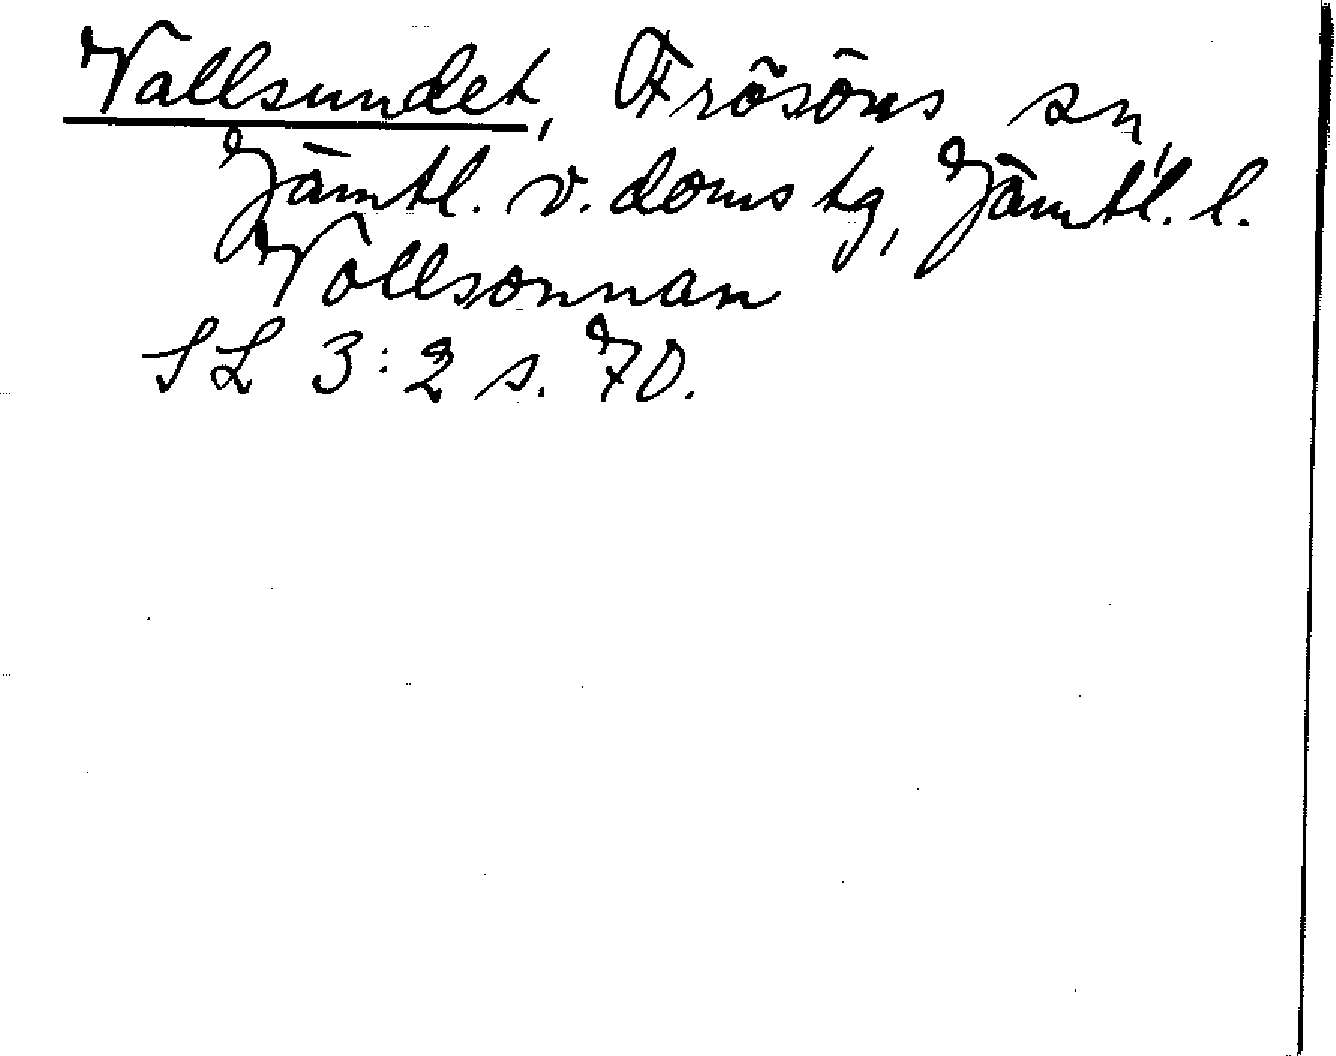 Vallsundet, Frösöns sn,
Jämtl. v. doms tg, Jämtl. l.
Vallsonnan
SL 3:2 s. 70.